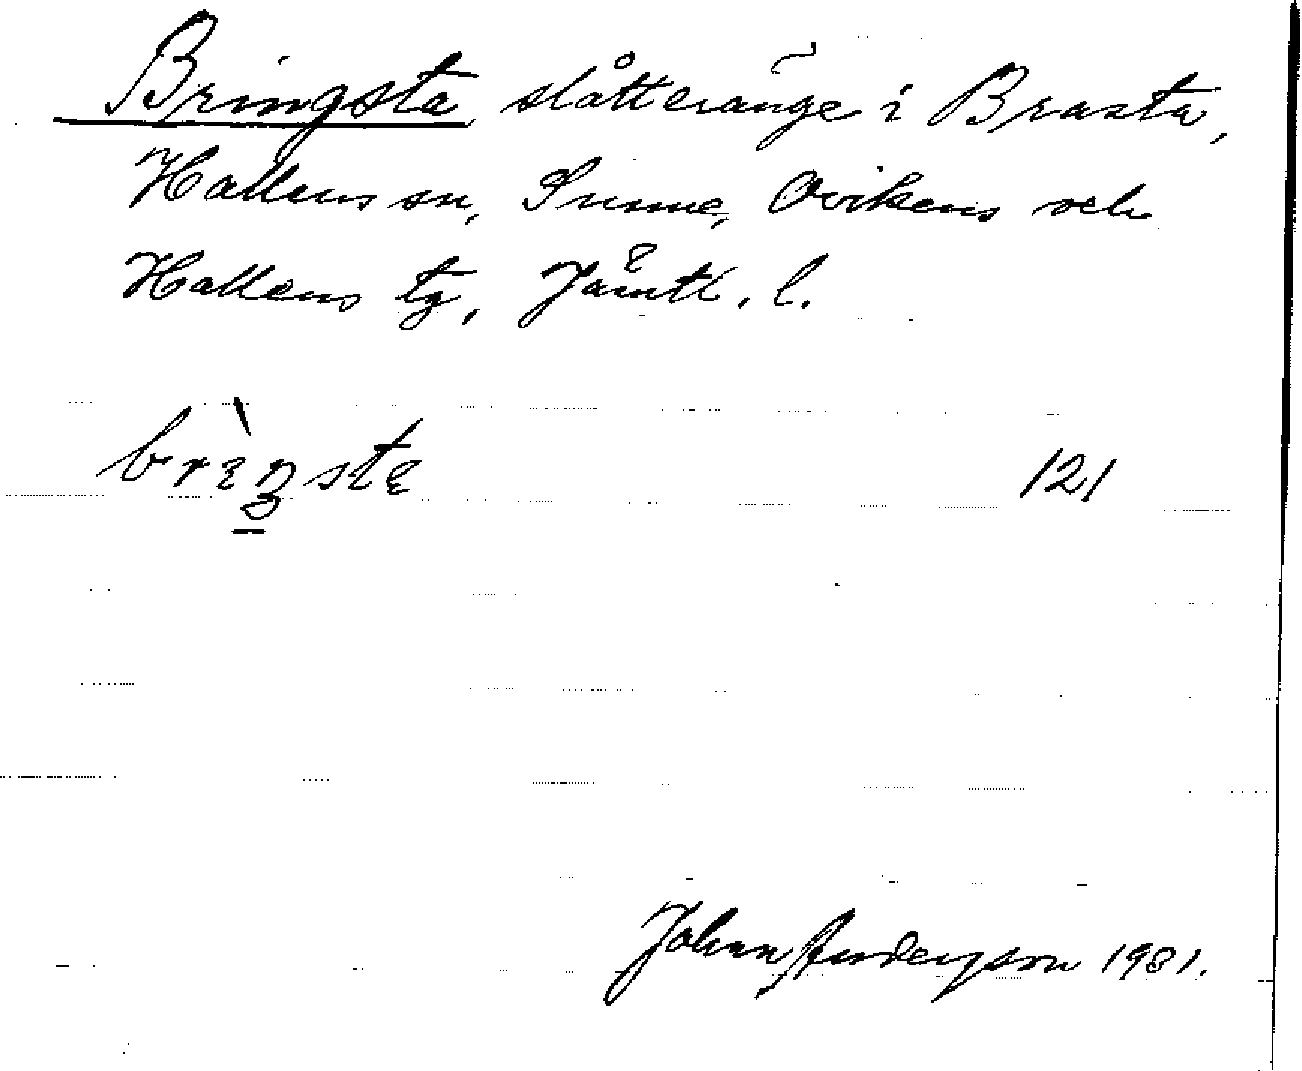 Bringsta slåtteränge i Brasta,
Hallens sn, Sunne, Ovikens och
Hallens tg, Jämtl. l.
121
Johan Anderson 1931.